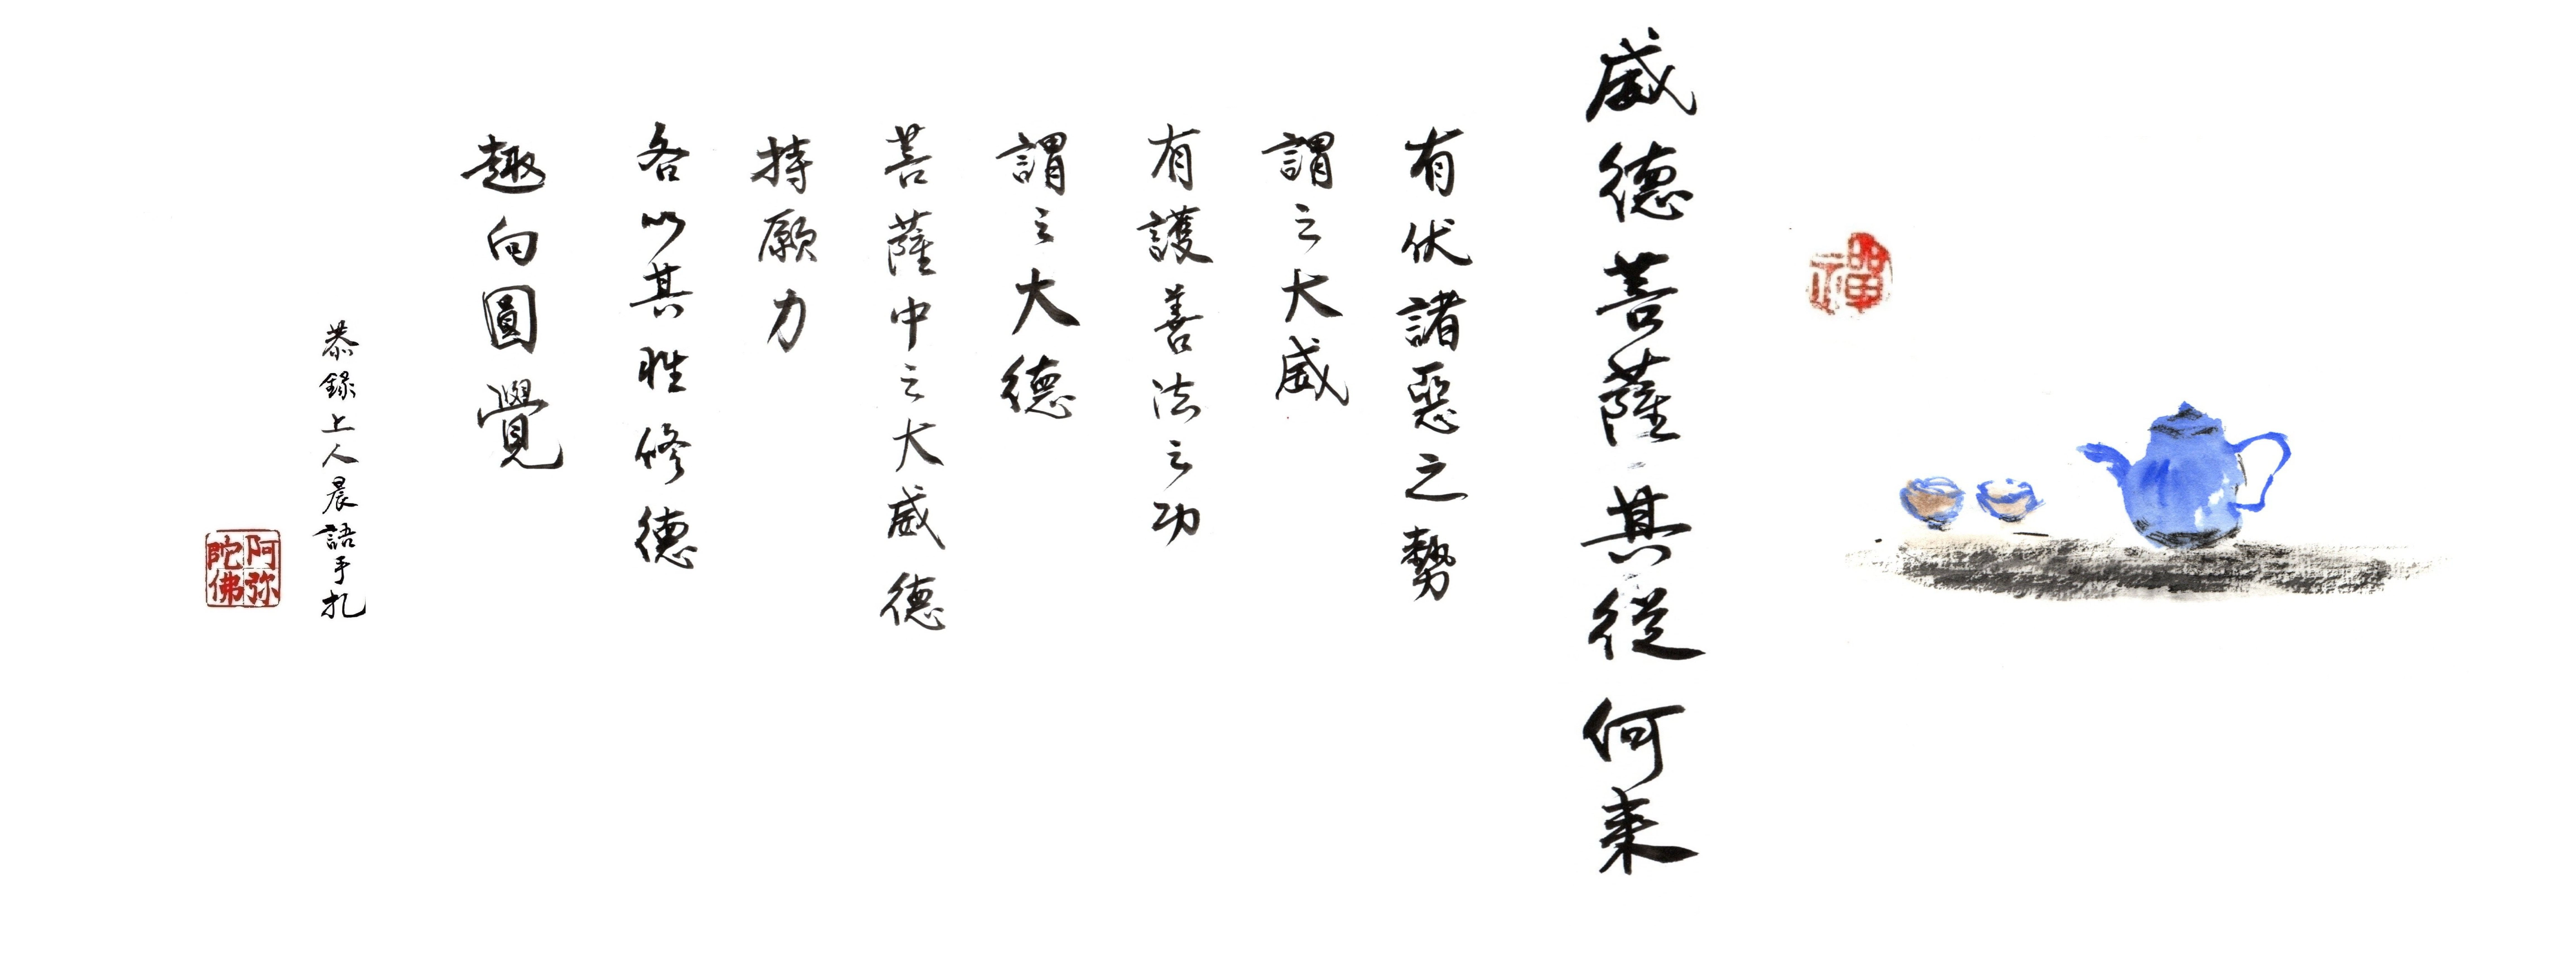 禪
威德菩薩其從何来
有伏諸惡之勢
謂之大威
有護善法之功
謂之大德
菩薩中之大威德
持願力
各以其性修德
趣向圓覺
恭錄上人晨語手扎
阿弥陀佛